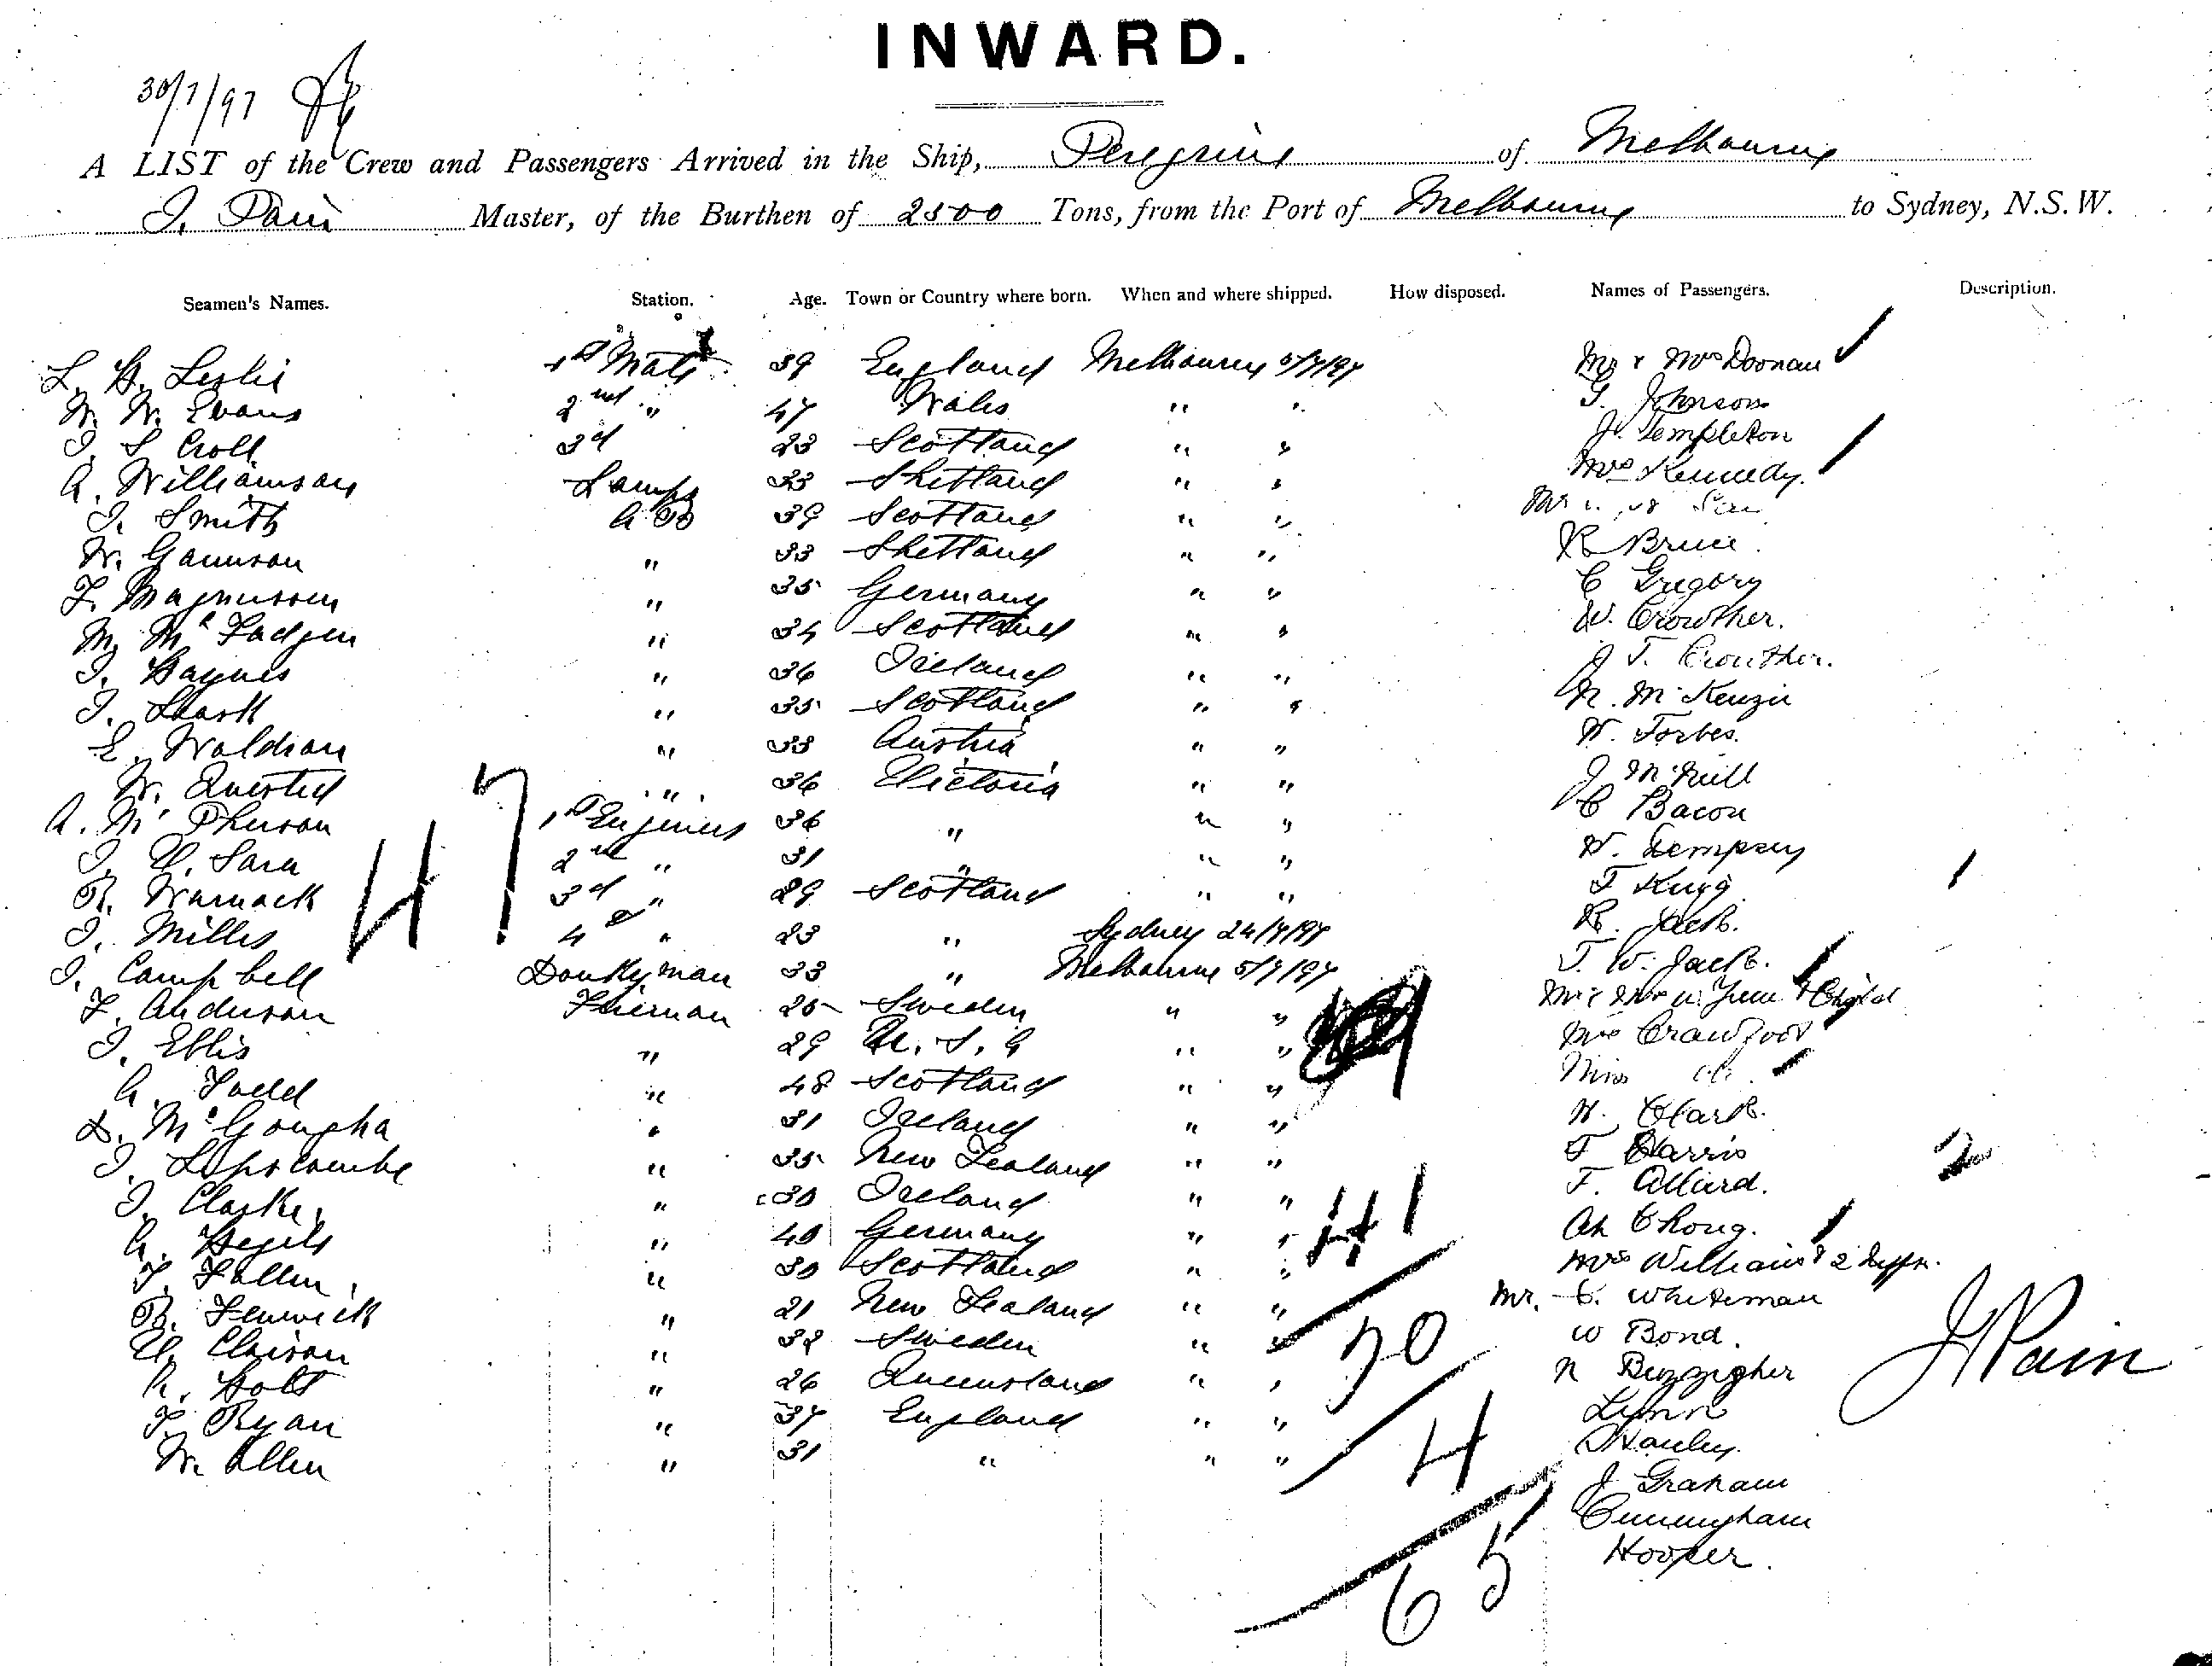 INWARD.
30/7/97
A LIST of the Crew and Passengers Arrived in the Ship, Peregrine of Melbourne
J. Pain Master, of the Burthen of 2500 Tons, from the Port of Melbourne to Sydney, N.S.W.
Seamen's Names. Station. Age. Town or Country where born. When and where shipped. How disposed. Names of Passengers. Description.
L. H. Leslie 1st Mate 39 England Melbourne 5/7/97 Mr & Mrs Doonan
W. W. Evans 2nd " 47 Wales " " G. Johnson
J. S Croll 3d 23 Scotland " " J. Templeton
A. Williamson Lamps 33 Shetland " " Mrs Kennedy.
J. Smith A B 39 Scotland " "
W. Gaunson " 33 Shetland " " R Bruce.
F. Magnussen " 35 Germany " " C Gregory
M. McFadgen " 34 Scotland " " W. Crowther.
J. Haynes " 36 Ireland " " J T. Crowther.
J. " 35 Scotland " " N. McKenzie
E. Waldran " 33 Austria " " W. Forbes.
W. Quested " 36 Victoria " " J McNeill
A. McPherson 1st Engineer 36 " " " C Bacon
J. U. Sara 2nd " 31 " " " W. Dempsey
R. Warnack 3d " 29 Scotland " " T King
J. Millis 4th " 23 " Sydney 24/7/97 R. Jack.
J. Campbell Donkeyman 33 " Melbourne 5/7/97 T. W. Jack.
F. Anderson Fireman 25 Sweden " " Child
J. Ellis " 29 U. S. A " " Mrs Crawfoot
A. Todd " 48 Scotland " " Miss do.
D. McGougha " 31 Ireland " " H. Clark.
J. Lipscombe " 35 New Zealand " " F Harris
J. Clarke, " 30 Ireland " " F. Allard.
A. " 40 Germany " " Ah Chong.
T. Fallen. " 30 Scotland " " Mrs Williams & 2
R. Fenwick " 21 New Zealand " " Mr. C. Whiteman
U. Clairon " 32 Sweden " " W Bond.
A. Holt " 26 Queensland " " N Buzzigher
T. Ryan " 37 England " " Lynn
W. Allen " 31 " " " Hanley.
J. Graham
Cunningham
Hooper.
47
1
2
41
30
4
65
J Pain